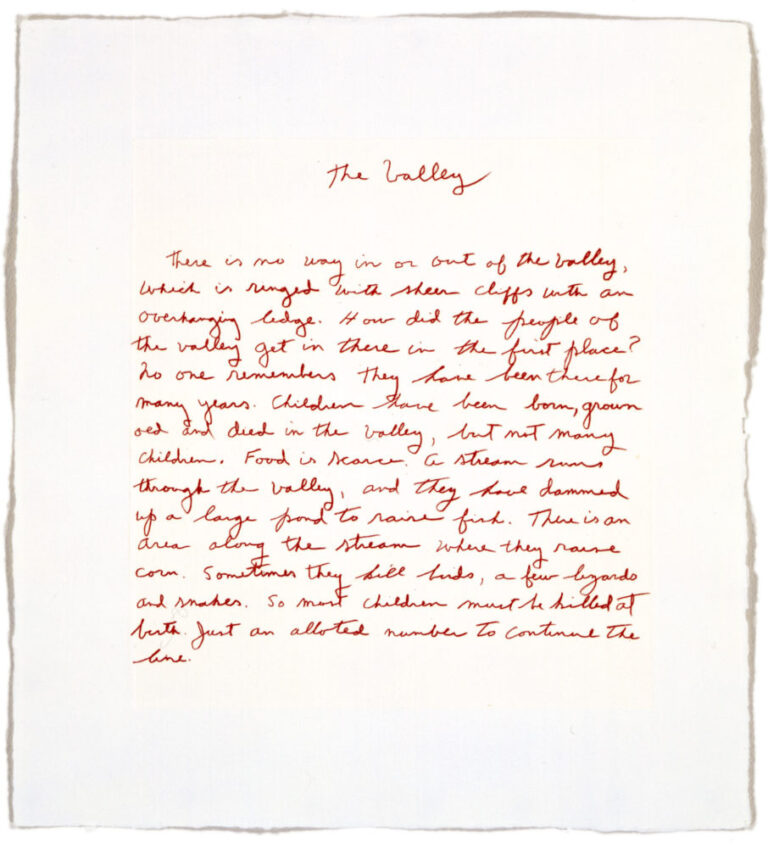 The Valley
There is no way in or out of the valley,
which is ringed with sheer cliffs with an
overhanging ledge. How did the people of
the valley get in there in the first place?
No one remembers They have been there for
many years. Children have been born, grown
old and died in the valley, but not many
children. Food is scarce. A stream runs
through the valley, and they have dammed
up a large pond to raise fish. There is an
area along the stream where they raise
corn. Sometimes they kill birds, a few lizards
and snakes. So most children must be killed at
birth. Just an alloted number to continue the
line.